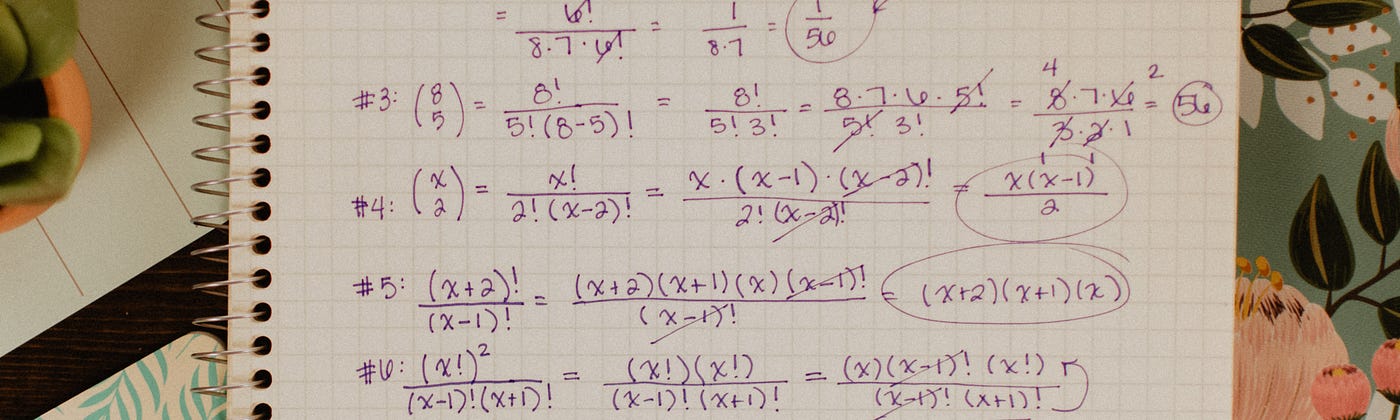 = 6!/(8·7·6!) = 1/(8·7) = 1/56
#3: (8 5) = 8!/(5!(8-5)!) = 8!/(5!3!) = (8·7·6·5!)/(5!3!) = (8·7·6)/(3·2·1) = 56 4 2 1 1
#4: (x 2) = x!/(2!(x-2)!) = (x·(x-1)·(x-2)!)/(2!(x-2)!) = x(x-1)/2
#5: (x+2)!/(x-1)! = ((x+2)(x+1)(x)(x-1)!)/(x-1)! = (x+2)(x+1)(x)
#6: (x!)²/((x-1)!(x+1)!) = ((x!)(x!))/((x-1)!(x+1)!) = ((x)(x-1)!(x!))/((x-1)!(x+1)!)